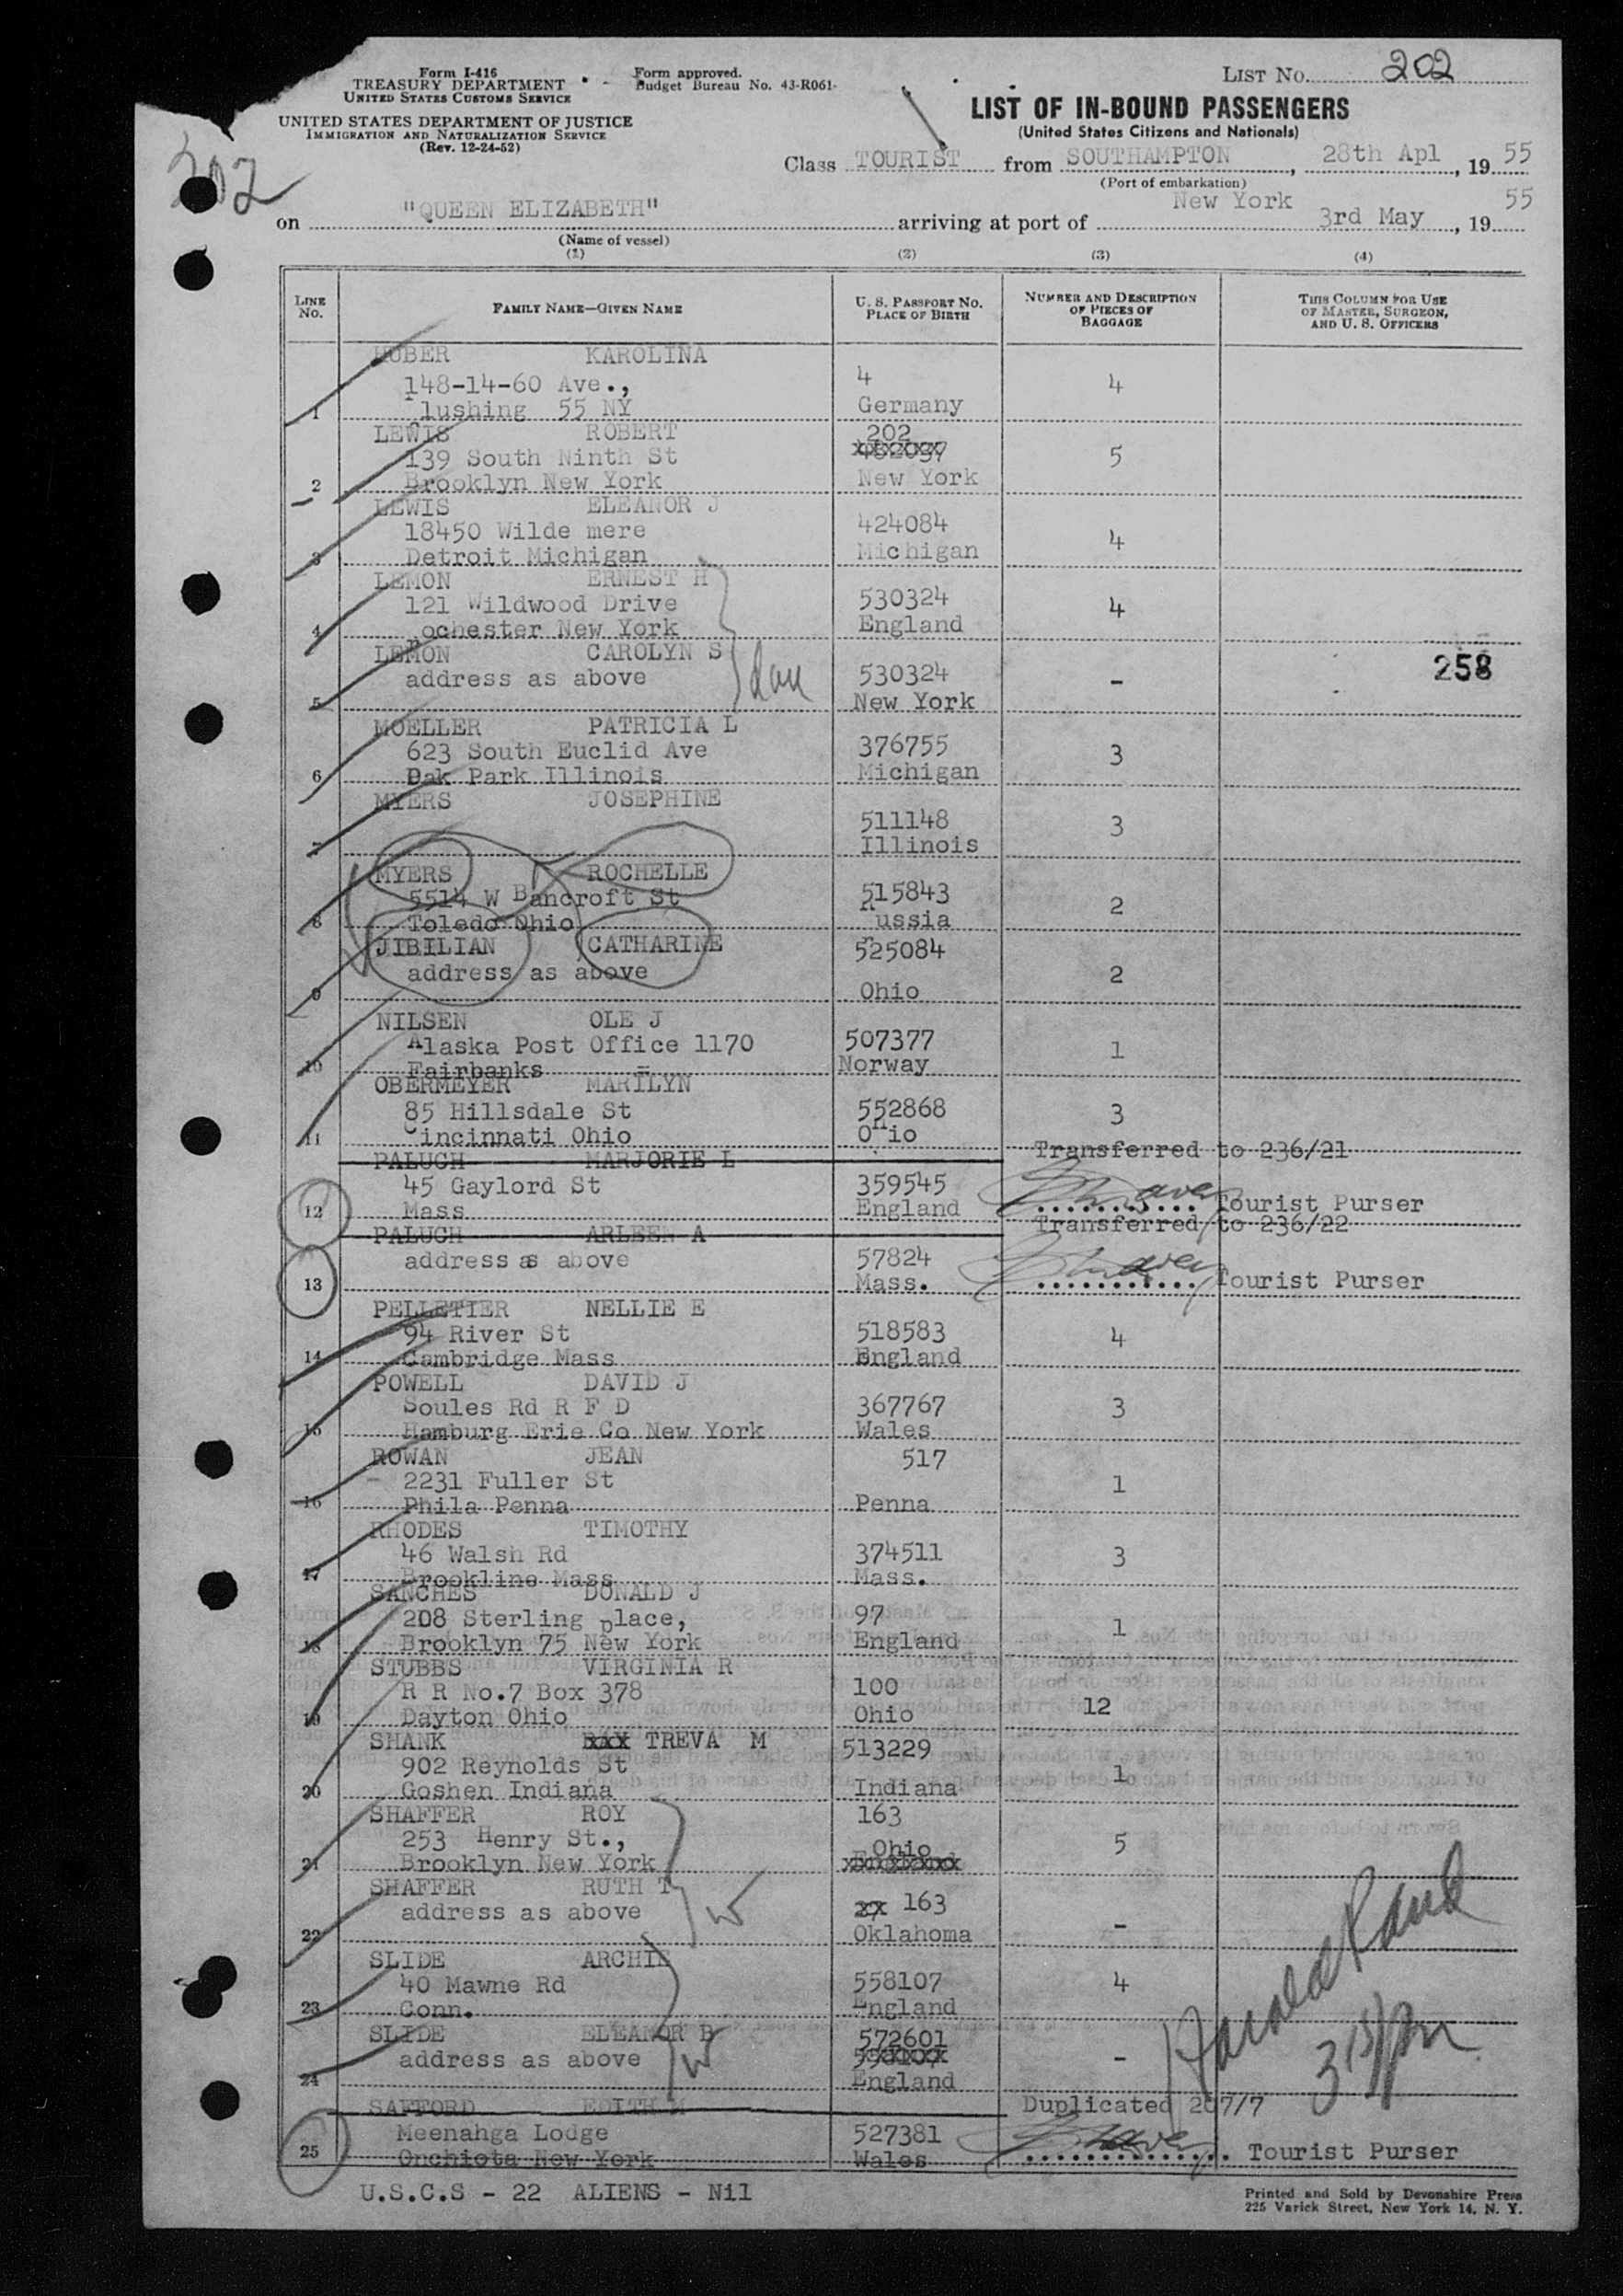 Form I-416
TREASURY DEPARTMENT
UNITED STATES CUSTOMS SERVICE
UNITED STATES DEPARTMENT OF JUSTICE
IMMIGRATION AND NATURALIZATION SERVICE
(Rev. 12-24-52)
Form approved.
Budget Bureau No. 43-R061-
LIST No. 202
LIST OF IN-BOUND PASSENGERS
(United States Citizens and Nationals)
202
Class TOURIST from SOUTHAMPTON, 28th Apl, 19 55
(Port of embarkation)
on "QUEEN ELIZABETH" arriving at port of New York 3rd May, 19 55
(Name of vessel)
(1) (2) (3) (4)
LINE No. FAMILY NAME—GIVEN NAME U. S. PASSPORT NO. PLACE OF BIRTH NUMBER AND DESCRIPTION OF PIECES OF BAGGAGE THIS COLUMN FOR USE OF MASTER, SURGEON, AND U. S. OFFICERS
HUBER KAROLINA
148-14-60 Ave., 4 4
1 lushing 55 NY Germany
LEWIS ROBERT 202
139 South Ninth St 5
2 Brooklyn New York New York
LEWIS ELEANOR J
18450 Wilde mere 424084 4
3 Detroit Michigan Michigan
LEMON ERNEST H
121 Wildwood Drive 530324 4
4 Rochester New York England
LEMON CAROLYN S
address as above 530324 - 258
5 New York
MOELLER PATRICIA L
623 South Euclid Ave 376755 3
6 Oak Park Illinois Michigan
MYERS JOSEPHINE
511148 3
7 Illinois
MYERS ROCHELLE
5514 W Bancroft St 515843 2
8 Toledo Ohio Russia
JIBILIAN CATHARINE 525084
address as above 2
9 Ohio
NILSEN OLE J
Alaska Post Office 1170 507377 1
10 Fairbanks Norway
OBERMEYER MARILYN
85 Hillsdale St 552868 3
11 Cincinnati Ohio Ohio
PALUCH MARJORIE L Transferred to 236/21
45 Gaylord St 359545
12 Mass England Tourist Purser
PALUCH ARLEEN A Transferred to 236/22
address as above 57824
13 Mass. Tourist Purser
PELLETIER NELLIE E
94 River St 518583 4
14 Cambridge Mass England
POWELL DAVID J
Soules Rd R F D 367767 3
15 Hamburg Erie Co New York Wales
ROWAN JEAN 517
- 2231 Fuller St 1
16 Phila Penna Penna
RHODES TIMOTHY
46 Walsh Rd 374511 3
17 Brookline Mass Mass.
SANCHES DONALD J
208 Sterling Place, 97 1
18 Brooklyn 75 New York England
STUBBS VIRGINIA R
R R No.7 Box 378 100 12
19 Dayton Ohio Ohio
SHANK TREVA M 513229
902 Reynolds St 1
20 Goshen Indiana Indiana
SHAFFER ROY 163
253 Henry St., Ohio 5
21 Brooklyn New York
SHAFFER RUTH T
address as above 163 -
22 Oklahoma
SLIDE ARCHIE
40 Mawne Rd 558107 4
23 Conn. England
SLIDE ELEANOR B 572601
address as above -
24 England
Harold Rand
315pm
SAFFORD EDITH M Duplicated 207/7
Meenahga Lodge 527381
25 Onchiota New York Wales Tourist Purser
U.S.C.S - 22 ALIENS - Nil
Printed and Sold by Devonshire Press
225 Varick Street, New York 14, N. Y.